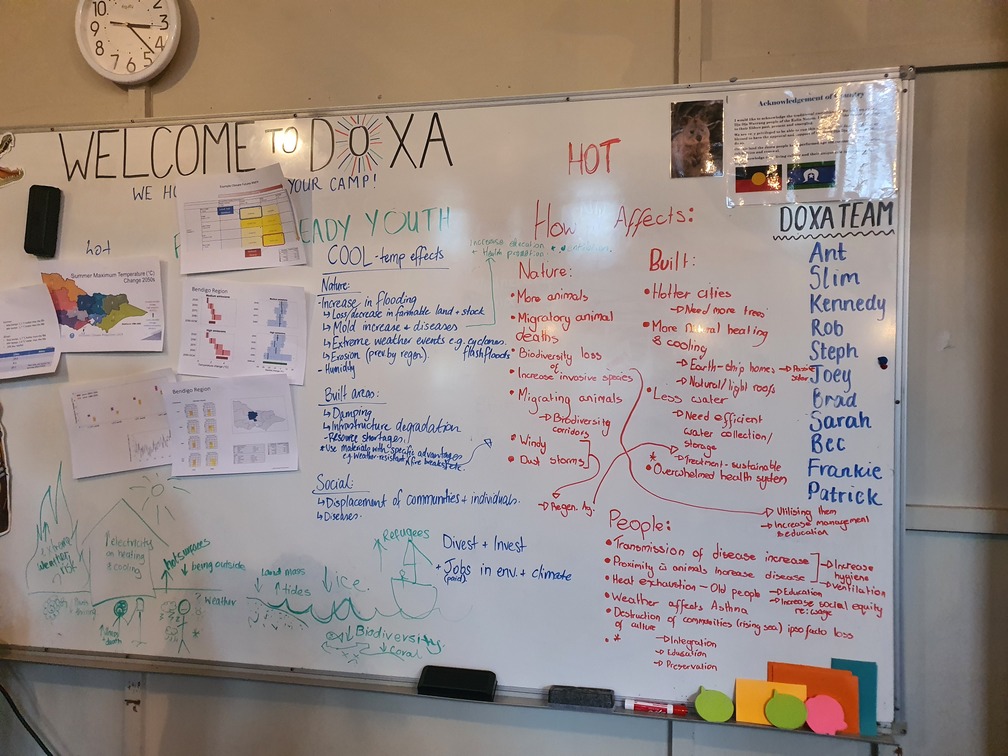 10 2 9 3 8 4 7 6 5
WELCOME TO DOXA
WE HO YOUR CAMP!
EADY YOUTH
HOT
Acknowledgement of Country
DOXA TEAM
Ant
Slim
Kennedy
Rob
Steph
Joey
Brad
Sarah
Bec
Frankie
Patrick
Summer Maximum Temperature (°C)
Change 2050s
Bendigo Region
Bendigo Region
COOL - temp effects
Nature:
- Increase in flooding
↳ Loss/decrease in farmable land + stock
↳ Mold increase + diseases
↳ Extreme weather events e.g. cyclones
flash floods
↳ Erosion (prev by regen)
- Humidity
Built areas:
↳ Damping
↳ Infrastructure degradation
- Resource shortages
* Use materials with specific advantages
e.g weather-resistant + fire breaks etc.
Social:
↳ Displacement of communities + individuals.
↳ Diseases
Increase education + ventilation
+ Health promotion
How Affects:
Nature:
• More animals
• Migratory animal
deaths
• Biodiversity loss
of
• Increase invasive species
• Migrating animals
→ Biodiversity
corridors
• Windy
• Dust storms
→ Regen. Ag.
Built:
• Hotter cities
→ Need more trees
• More natural heating
& cooling
→ Earth-ship homes → Passive
solar
→ Natural/light roofs
• Less water
→ Need efficient
water collection/
storage
→ Treatment - sustainable
*
• Overwhelmed health system
→ Utilising them
→ Increase management
& education
People:
• Transmission of disease increase
• Proximity to animals increase disease
→ Increase
hygiene
→ Ventilation
• Heat exhaustion - Old people → Education
→ Increase social equity
re: wage
• Weather affects Asthma
• Destruction of communities (rising sea) ipso facto loss
of culture
• *
→ Integration
→ Education
→ Preservation
Divest + Invest
+ Jobs in env. + climate
(paid)
↑ extreme
weather
risk
↑ electricity
on heating
& cooling
↑ hot surfaces
↓ being outside
? Weather
↑ illness
+ death
↓ land mass
↑ tides
↓ ice
↑ Refugees
↓ Biodiversity
↓ Coral